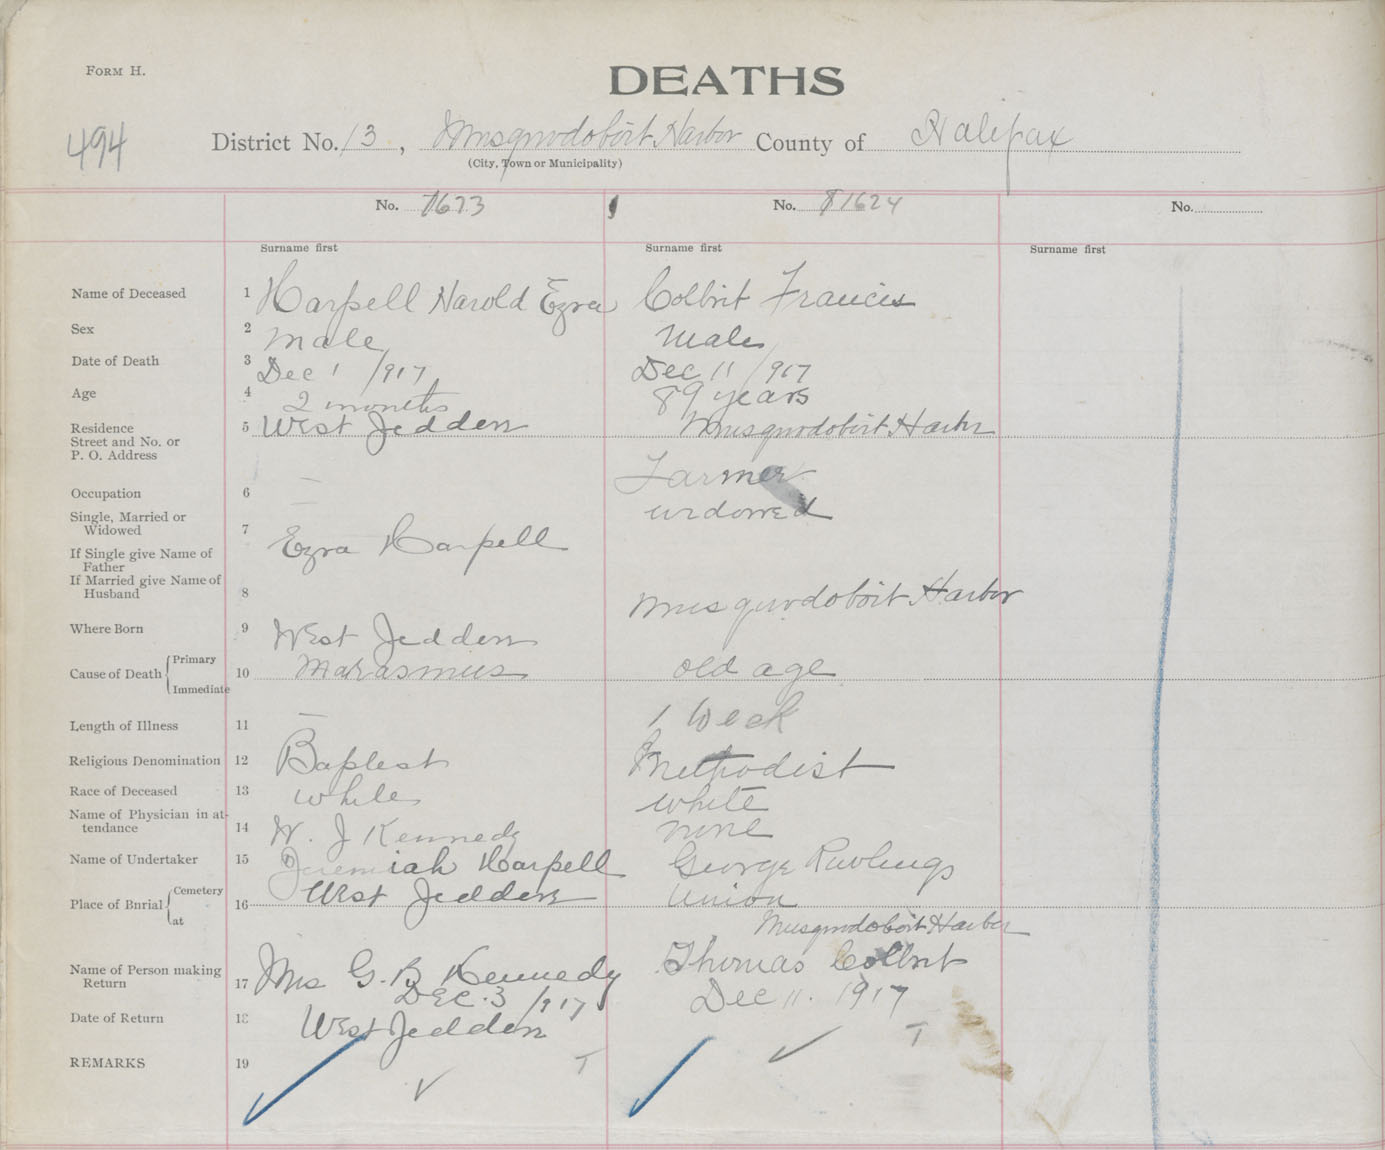 FORM H.
DEATHS
494
District No. 13, Musquodoboit Harbor County of Halifax
(City, Town or Municipality)
No. 1623
No. 1624
No.
Surname first
Surname first
Surname first
Name of Deceased 1 Harpell Harold Ezra Colbrit Francis
Sex 2 male male
Date of Death 3 Dec 1 /917 Dec 11 /917
Age 4 2 months 89 years
Residence
Street and No. or
P. O. Address
5 West Jeddern Musquodoboit Harbor
Occupation 6 — Farmer
Single, Married or
Widowed
7 — widowed
If Single give Name of
Father
Ezra Harpell
If Married give Name of
Husband
8
Where Born 9 West Jeddern Musquodoboit Harbor
Cause of Death { Primary
Immediate
10 Marasmus old age
Length of Illness 11 — 1 week
Religious Denomination 12 Baptest Methodist
Race of Deceased 13 white white
Name of Physician in at-
tendance
14 W. J Kennedy none
Name of Undertaker 15 Jeremiah Harpell George Rowlings
Place of Burial { Cemetery
at
16 West Jeddern Union
Musquodoboit Harbor
Name of Person making
Return
17 Mrs G. B Kennedy Thomas Colbrit
Date of Return 18 Dec. 3 /917 Dec 11. 1917
West Jeddern
REMARKS 19
T
T